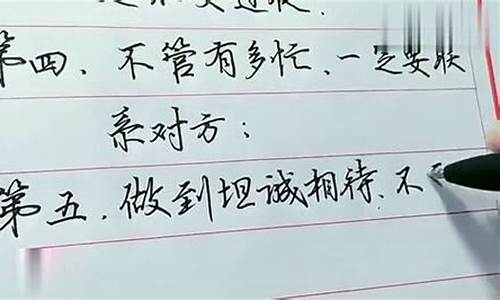 第四、不管有多忙、一定要联
系对方;
第五、做到坦诚相待、不